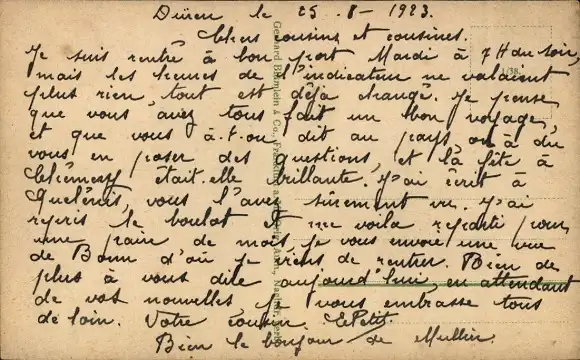 Düren le 25-8-1923.
Chers cousins et cousines.
Je suis rentré à bon port Mardi à 7H du soir,
mais les heures de l'indicateur ne valaient
plus rien, tout est déjà changé. Je pense
que vous avez tous fait un bon voyage,
et que vous a-t-on dit au pays on a dû
vous en poser des questions, et la fête à
Chémery était-elle brillante. J'ai écrit à
vous l'avez sûrement vu. J'ai
repris le boulot et me voila reparti pour
une paire de mois, je vous envoie une vue
de Bonn d'où je viens de rentrer. Bien de
plus à vous dire aujourd'hui, en attendant
de vos nouvelles, je vous embrasse tous
de loin. Votre cousin. Petit.
Bien le bonjour de
Gerhard Blümlein & Co., Frankfurt a.